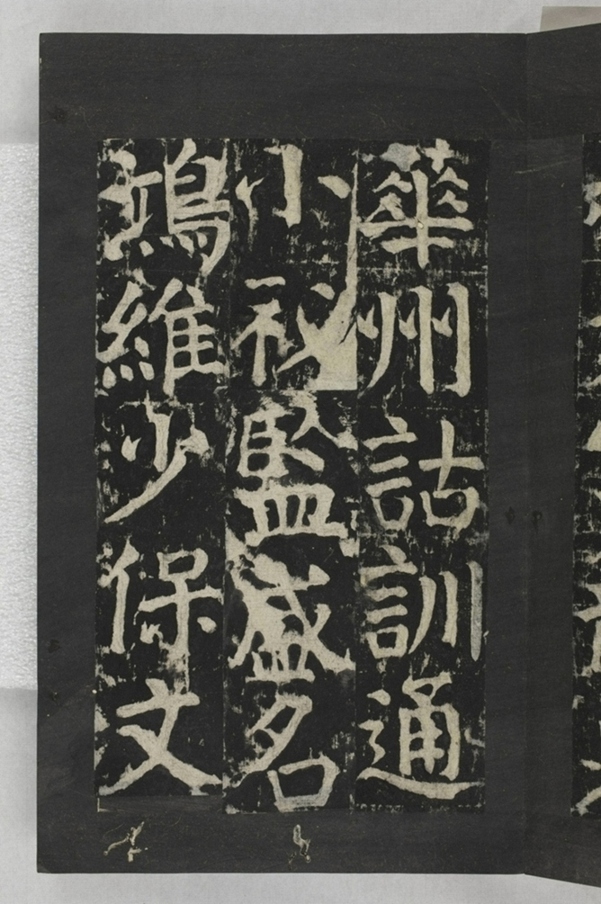 華州詁訓通
小祕監盛名
鴻維少保文